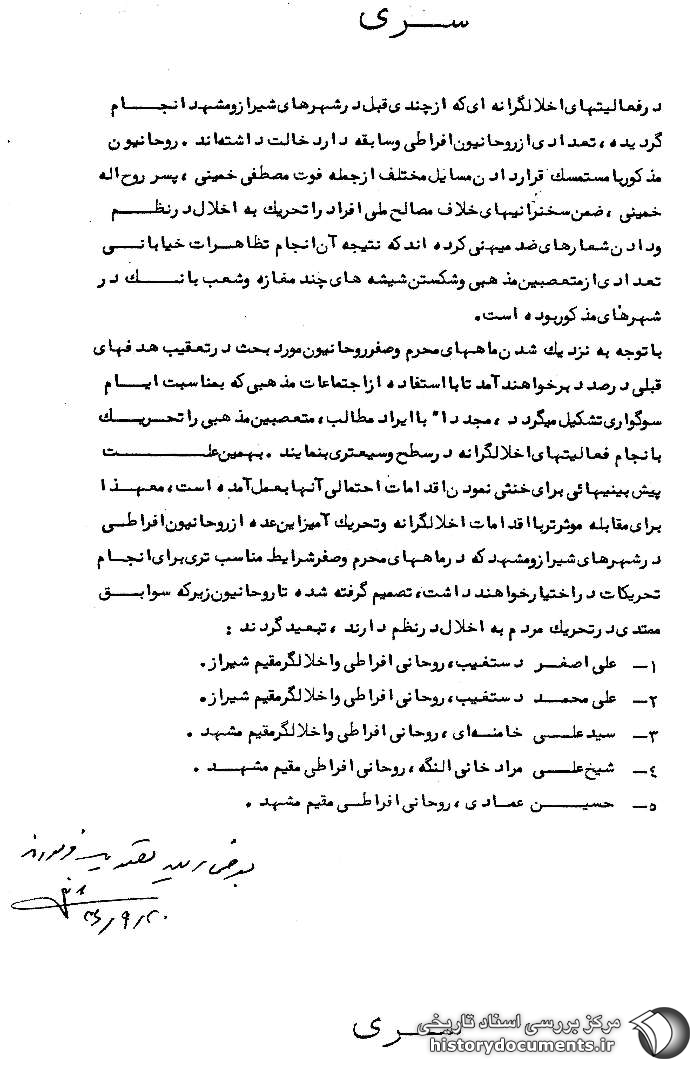 سری
در فعالیتهای اخلالگرانه ای که از چندی قبل در شهرهای شیراز و مشهد انجام
گردیده، تعدادی از روحانیون افراطی و سابقه دار دخالت داشته‌اند. روحانیون
مذکور با مستمسک قرار دادن مسایل مختلف از جمله فوت مصطفی خمینی، پسر روح اله
خمینی، ضمن سخنرانیهای خلاف مصالح ملی افراد را تحریک به اخلال در نظم
و دادن شعارهای ضد میهنی کرده اند که نتیجه آن انجام تظاهرات خیابانی
تعدادی از متعصبین مذهبی و شکستن شیشه های چند مغازه و شعب بانک در
شهرهای مذکور بوده است.
با توجه به نزدیک شدن ماههای محرم و صفر روحانیون مورد بحث در تعقیب هدفهای
قبلی درصدد بر خواهند آمد تا با استفاده از اجتماعات مذهبی که بمناسبت ایام
سوگواری تشکیل میگردد، مجددا" با ایراد مطالب، متعصبین مذهبی را تحریک
بانجام فعالیتهای اخلالگرانه در سطح وسیعتری بنمایند. بهمین علت
پیش بینیهائی برای خنثی نمودن اقدامات احتمالی آنها بعمل آمده است، معهذا
برای مقابله موثرتر با اقدامات اخلالگرانه و تحریک آمیز این عده از روحانیون افراطی
در شهرهای شیراز و مشهد که در ماههای محرم و صفر شرایط مناسب تری برای انجام
تحریکات در اختیار خواهند داشت، تصمیم گرفته شده تا روحانیون زیر که سوابق
ممتدی در تحریک مردم به اخلال در نظم دارند، تبعید گردند:
۱- علی اصغر دستغیب، روحانی افراطی و اخلالگر مقیم شیراز.
۲- علی محمد دستغیب، روحانی افراطی و اخلالگر مقیم شیراز.
۳- سید علی خامنه‌ای، روحانی افراطی و اخلالگر مقیم مشهد.
۴- شیخ علی مراد خانی النگه، روحانی افراطی مقیم مشهد.
۵- حسین عمادی، روحانی افراطی مقیم مشهد.
بعرض رسید تصویب فرمودند
۳۶/۹/۲۰
سری
مرکز بررسی اسناد تاریخی
historydocuments.ir